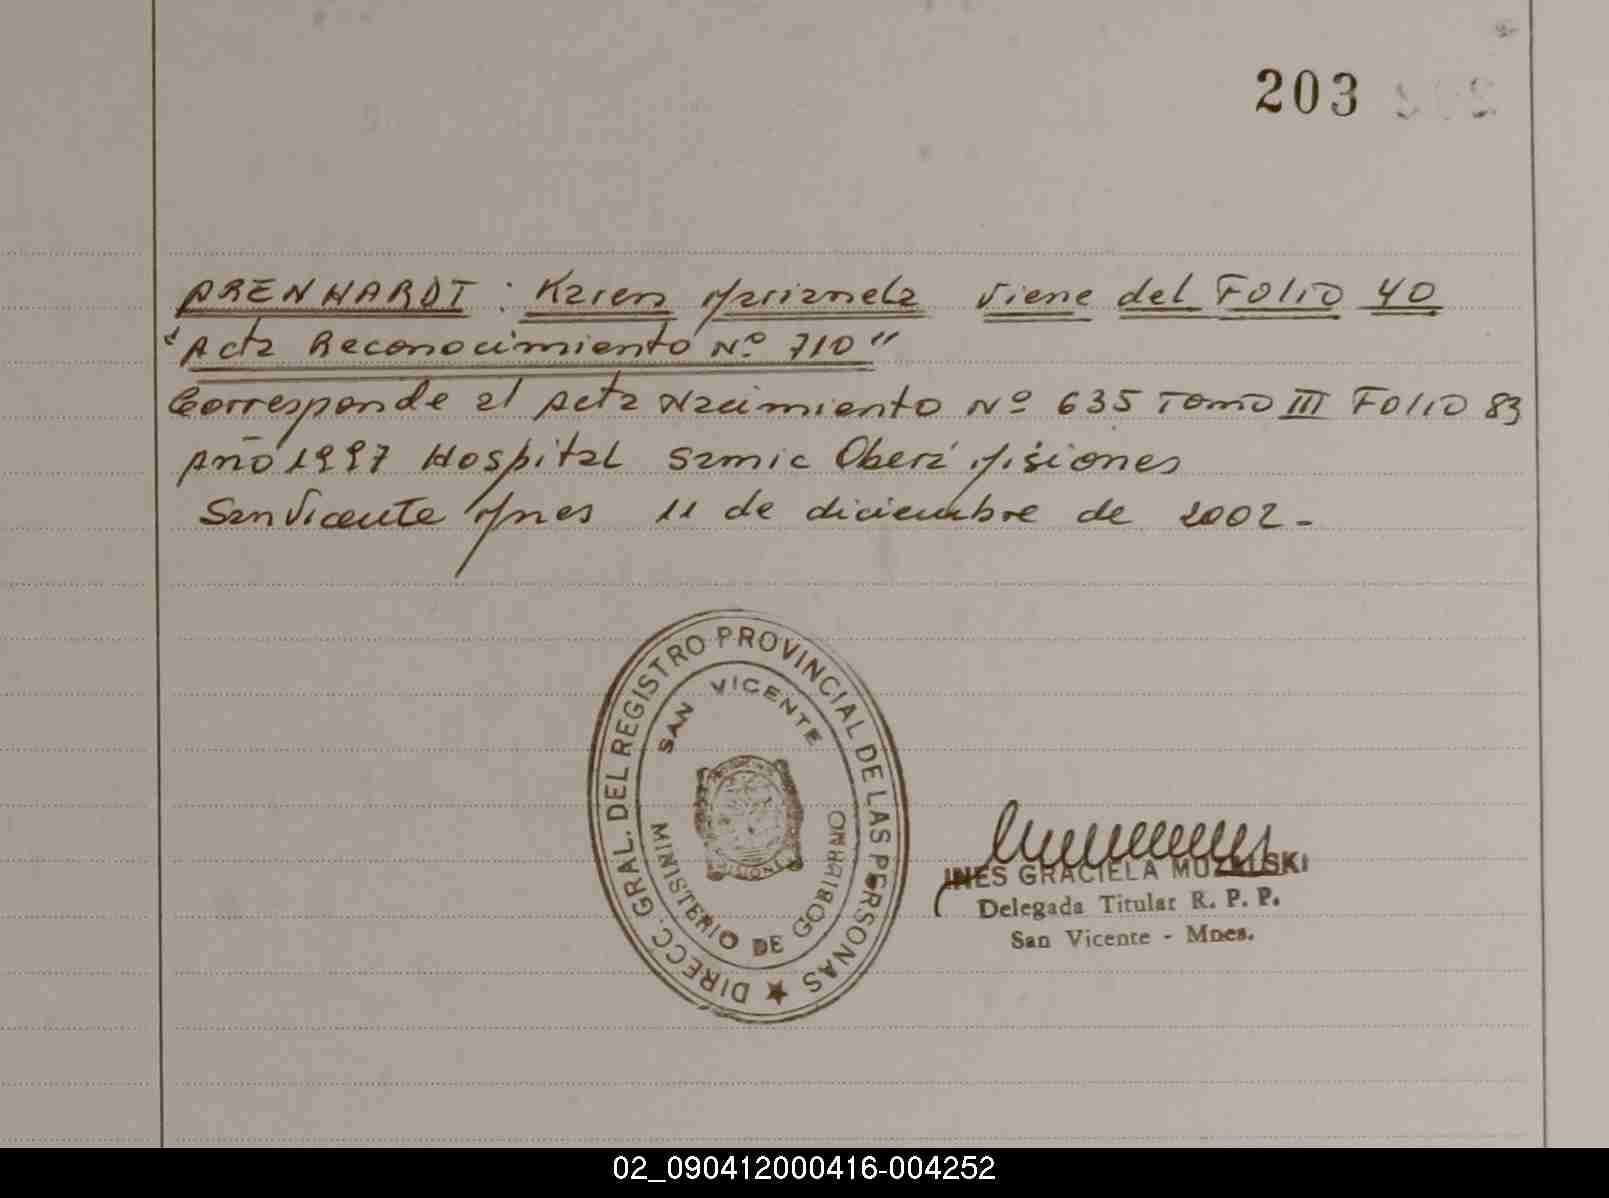 203
ARENHARDT : Karen Marianela viene del FOLIO 40
"Acta Reconocimiento Nº 710"
Corresponde al Acta Nacimiento Nº 635 Tomo III FOLIO 83
Año 1997 Hospital Samic Oberá Misiones
San Vicente Mnes 11 de diciembre de 2002.-
DIRECC. GRAL. DEL REGISTRO PROVINCIAL DE LAS PERSONAS
SAN VICENTE
MISIONES
MINISTERIO DE GOBIERNO
INES GRACIELA
Delegada Titular R. P. P.
San Vicente - Mnes.
02_090412000416-004252